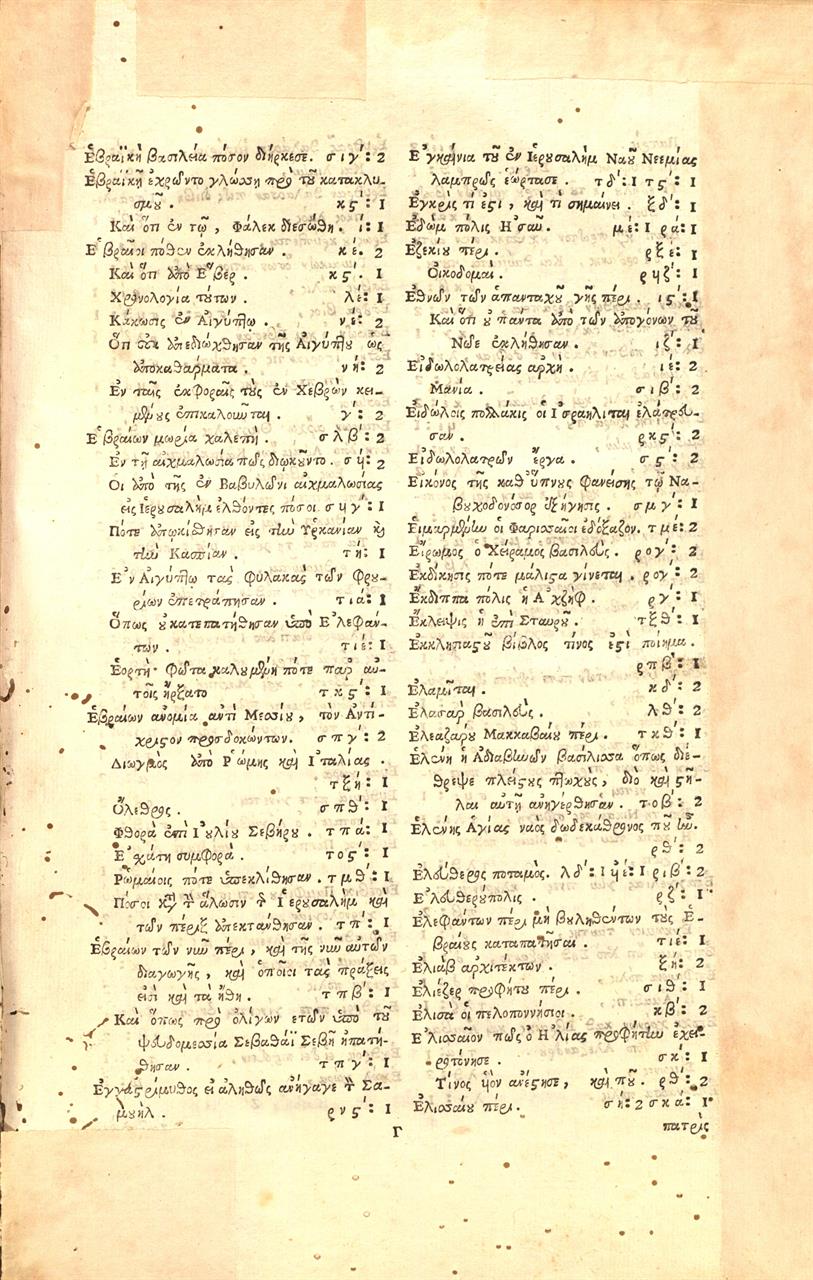 Ἑβραϊκὴ βασιλεία πόσον διήρκεσε. σιγ´: 2
Ἑβραϊκῇ ἐχρῶντο γλώσσῃ πρὸ τοῦ κατακλυ-
σμοῦ. κϛ´: 1
Καὶ ὅτι ἐν τῷ, Φάλεκ διεσώθη. ί: 1
Ἑβραῖοι πόθεν ἐκλήθησαν. κέ. 2
Καὶ ὅτι ἀπὸ Ἕβερ. κϛ´. 1
Χρονολογία τούτων. λέ: 1
Κάκωσις ἐν Αἰγύπτῳ. νέ: 2
Ὅτι οὐκ ἀπεδιώχθησαν τῆς Αἰγύπτου ὡς
ἀποκαθάρματα. νή: 2
Ἐν ταῖς ἐκφοραῖς τοὺς ἐν Χεβρὼν κει-
μένους ἐπικαλοῦνται. γ´: 2
Ἑβραίων μωρία χαλεπή. σλβ´: 2
Ἐν τῇ αἰχμαλωσίᾳ πῶς διῳκοῦντο. σή: 2
Οἱ ἀπὸ τῆς ἐν Βαβυλῶνι αἰχμαλωσίας
εἰς Ἱερουσαλὴμ ἐλθόντες πόσοι. σϟγ´: 1
Πότε ἀπῳκίσθησαν εἰς τὴν Ὑρκανίαν καὶ
τὴν Κασπίαν. τή: 1
Ἐν Αἰγύπτῳ τὰς φυλακὰς τῶν Φρου-
ρίων ἐπετράπησαν. τιά: 1
Ὅπως οὐ κατεπατήθησαν ὑπὸ Ἐλεφάν-
των. τιέ: 1
Ἑορτὴ Φῶτα καλουμένη πότε παρ' αὐ-
τοῖς ἤρξατο τκϛ´: 1
Ἑβραίων ἀνομία ἀντὶ Μεσσίου, τὸν Ἀντί-
χριστον προσδοκώντων. σπγ´: 2
Διωγμὸς ἀπὸ Ῥώμης καὶ Ἰταλίας.
τξή: 1
Ὄλεθρος. σπθ´: 1
Φθορὰ ἐπὶ Ἰουλίου Σεβήρου. τπά: 1
Ἐσχάτη συμφορά. τοϛ´: 1
Ῥωμαίοις πότε ὑπεκλίθησαν. τμθ´: 1
Πόσοι κατὰ τὴν ἅλωσιν τῆς Ἱερουσαλὴμ καὶ
τῶν πέριξ ἀπεκτάνθησαν. τπ´: 1
Ἑβραίων τῶν νῦν πέρι, καὶ τῆς νῦν αὐτῶν
διαγωγῆς, καὶ ὁποῖοι τὰς πράξεις
εἰσὶ καὶ τὰ ἤθη. τπβ´: 1
Καὶ ὅπως πρὸ ὀλίγων ἐτῶν ὑπὸ τοῦ
ψευδομεσσία Σεβαθάϊ Σεβῆ ἠπατή-
θησαν. τπγ´: 1
Ἐγγαστρίμυθος εἰ ἀληθῶς ἀνήγαγε τὸν Σα-
μουήλ. ρνϛ´: 1
Γ
Ἐγκαίνια τοῦ ἐν Ἱερουσαλὴμ Ναοῦ Νεεμίας
λαμπρῶς ἑώρτασε. τδ´: 1 τϛ´: 1
Ἐγκρὶς τί ἐστι, καὶ τί σημαίνει. ξδ´: 1
Ἐδὼμ πόλις Ἡσαῦ. μέ: 1 ρά: 1
Ἐζεκίου πέρι. ρξε: 1
Οἰκοδομαί. ρϟζ´: 1
Ἐθνῶν τῶν ἁπανταχοῦ γῆς πέρι. ιϛ´: 1
Καὶ ὅτι οὐ πάντα ἀπὸ τῶν ἀπογόνων τοῦ
Νῶε ἐκλήθησαν. ιζ´: 1
Εἰδωλολατρείας ἀρχή. ιέ: 2
Μανία. σιβ´: 2
Εἰδώλοις πολλάκις οἱ Ἰσραηλῖται ἐλάτρευ-
σαν. ρκϛ´: 2
Εἰδωλολατρῶν ἔργα. σϛ´: 2
Εἰκόνος τῆς καθ' ὕπνους φανείσης τῷ Να-
βουχοδονόσορ ἐξήγησις. σμγ´: 1
Εἱμαρμένην οἱ Φαρισαῖοι ἐδόξαζον. τμέ: 2
Εἴρωμος ὁ Χείραμος βασιλεύς. ρογ´: 2
Ἐκδίκησις πότε μάλιστα γίνεται. ρογ´: 2
Ἔκδιππα πόλις ἡ Ἀχζήφ. ργ´: 1
Ἔκλειψις ἡ ἐπὶ Σταυροῦ. τξθ´: 1
Ἐκκλησιαστοῦ βίβλος τίνος ἐστὶ ποίημα.
ρπβ´: 1
Ἐλαμῖται. κδ´: 2
Ἐλασὰρ βασιλεύς. λθ´: 2
Ἐλεαζάρου Μακκαβαίου πέρι. τκθ´: 1
Ἑλένη ἡ Ἀδιαβηνῶν βασίλισσα ὅπως διέ-
θρεψε πλείστους πτωχούς, διὸ καὶ στῆ-
λαι αὐτῇ ἀνηγέρθησαν. τοβ´: 2
Ἑλένης Ἁγίας ναὸς δωδεκάθρονος ποῦ ἦν.
ρθ´: 2
Ἐλεύθερος ποταμός. λδ´: 1 ϟέ: 1 ριβ´: 2
Ἐλευθερούπολις. ρζ´: 1
Ἐλεφάντων πέρι μὴ βουληθέντων τοὺς Ἑ-
βραίους καταπατῆσαι. τιέ: 1
Ἐλιὰβ ἀρχιτέκτων. ξή: 2
Ἐλιέζερ προφήτου πέρι. σιθ´: 1
Ἐλισὰ οἱ πελοποννήσιοι. κβ´: 2
Ἐλισσαῖον πῶς ὁ Ἠλίας προφήτην ἐχει-
ροτόνησε. σκ´: 1
Τίνος υἱὸν ἀνέστησε, καὶ ποῦ. ρθ´: 2
Ἐλισσαίου πέρι. σή: 2 σκά: 1
πατρὶς